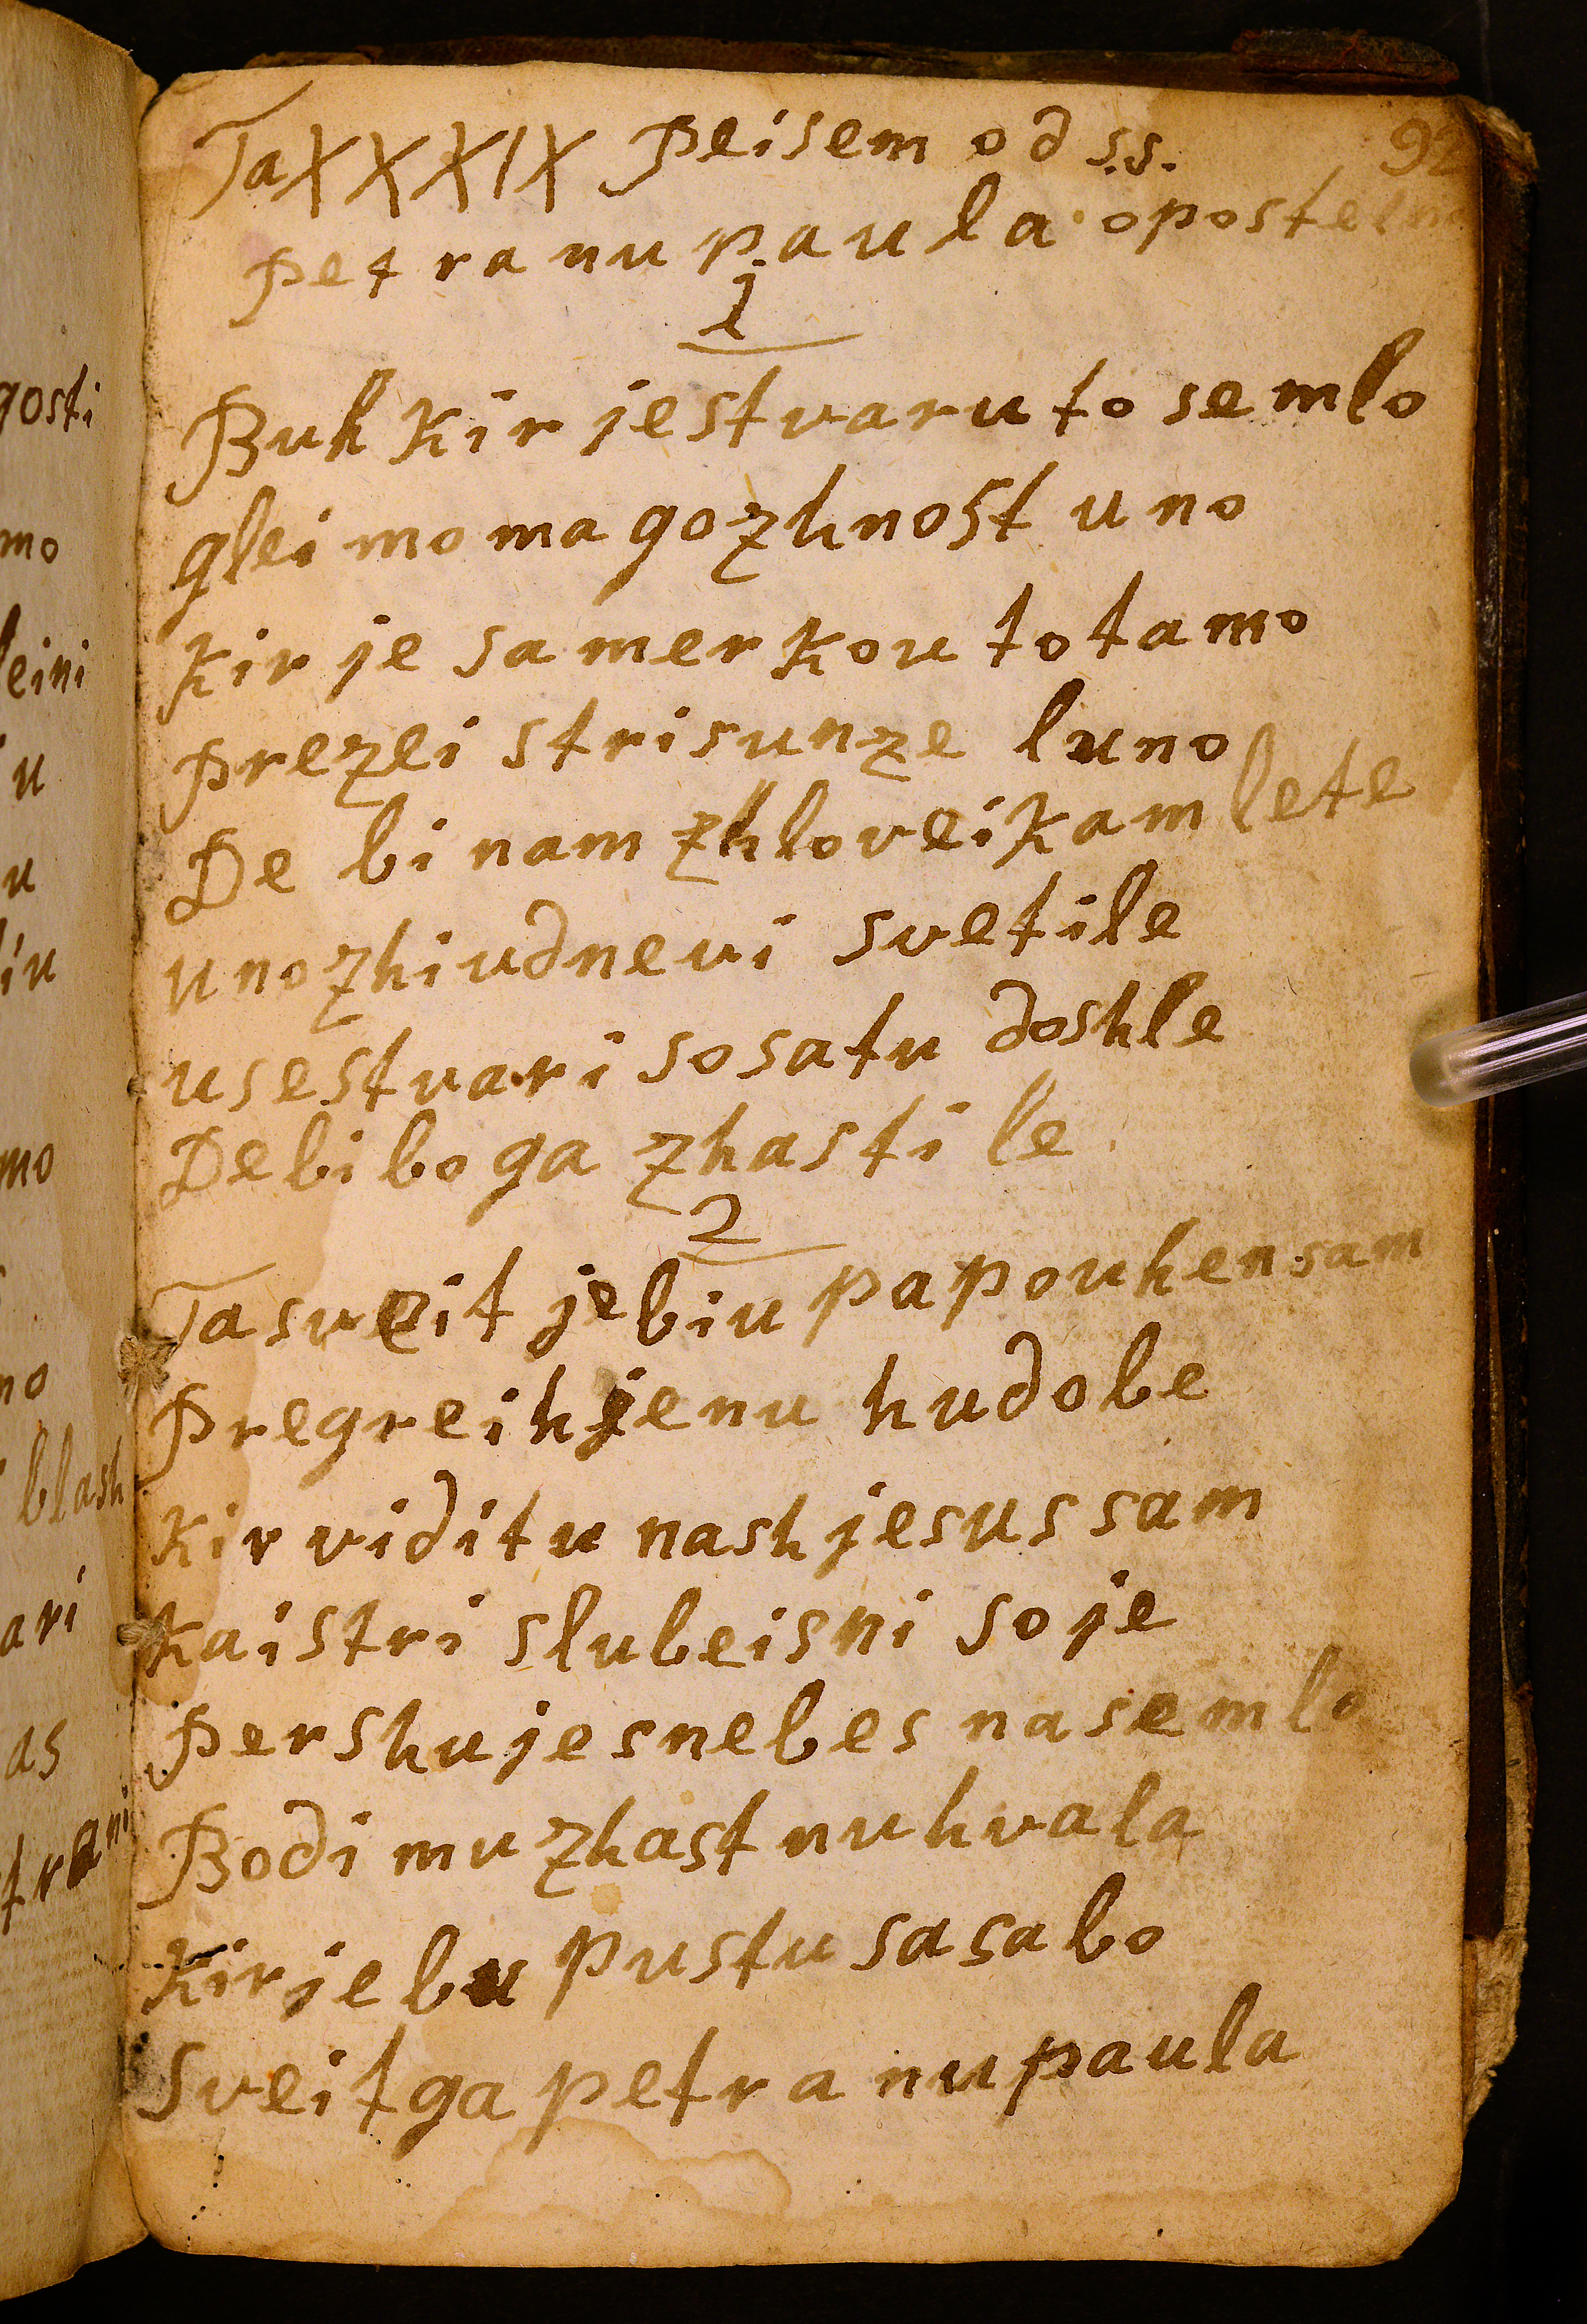 92
Ta XXXIX Peisem od s.s.
petra nu paula opostelna
1
Buh Kir je stvaru to semlo
glei mo magozhnost uno
Kir je samerkou to tamo
prezei stri sunze luno
De bi nam zhloveikam lete
unozhi udnevi svetile
use stvari so satu doshle
De bi boga zhastile
2
Ta sveit je biu papouhen sam
Pregreih jenu hudobe
Kir viditu nash jesus sam
Kai stri slubeisni soje
Pershu je snebes na semlo
Bodi mu zhast nu hvala
Kir je bu pustu sasabo
Sveitga petra nu paula
gosti
mo
leini
u
u
iu
mo
no
blash
ari
as